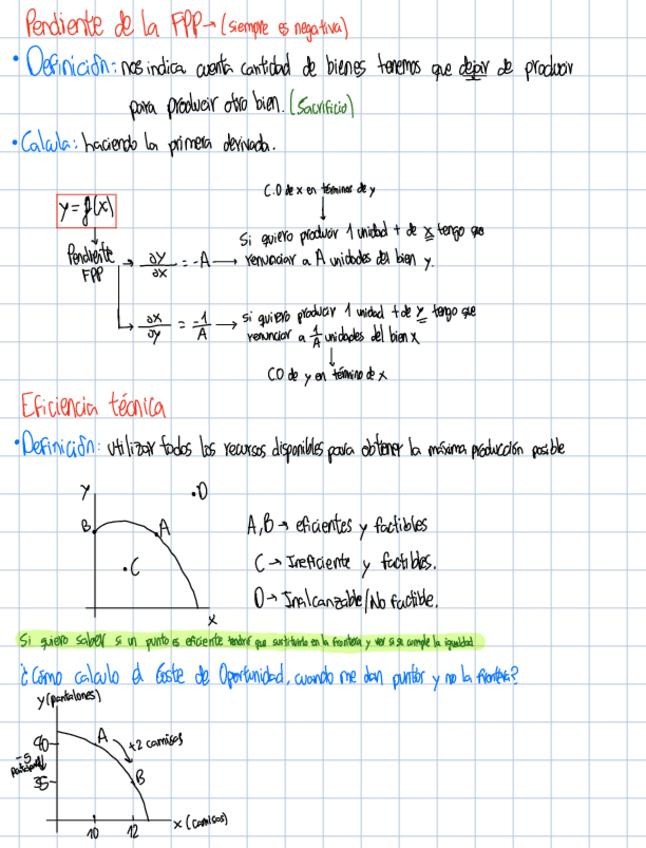 Pendiente de la FPP → (siempre es negativa)
• Definición: nos indica cuanta cantidad de bienes tenemos que dejar de producir
para producir otro bien. (Sacrificio)
• Calcula: haciendo la primera derivada.
C.O de x en términos de y
y = f(x)
Si quiero producir 1 unidad + de x tengo que
Pendiente FPP → ∂y/∂x = -A → renunciar a A unidades del bien y.
→ ∂x/∂y = -1/A → si quiero producir 1 unidad + de y tengo que
renunciar a 1/A unidades del bien x
CO de y en término de x
Eficiencia técnica
• Definición: utilizar todos los recursos disponibles para obtener la máxima producción posible
y
•D
B
A
A,B → eficientes y factibles
•C
C → Ineficiente y factibles.
D → Inalcanzable/No factible.
x
Si quiero saber si un punto es eficiente tendré que sustituirlo en la frontera y ver si se cumple la igualdad
¿Cómo calculo el Coste de Oportunidad, cuando me dan puntos y no la frontera?
y (pantalones)
A
+2 camisas
40
-5
B
35
10
12
x (camisas)